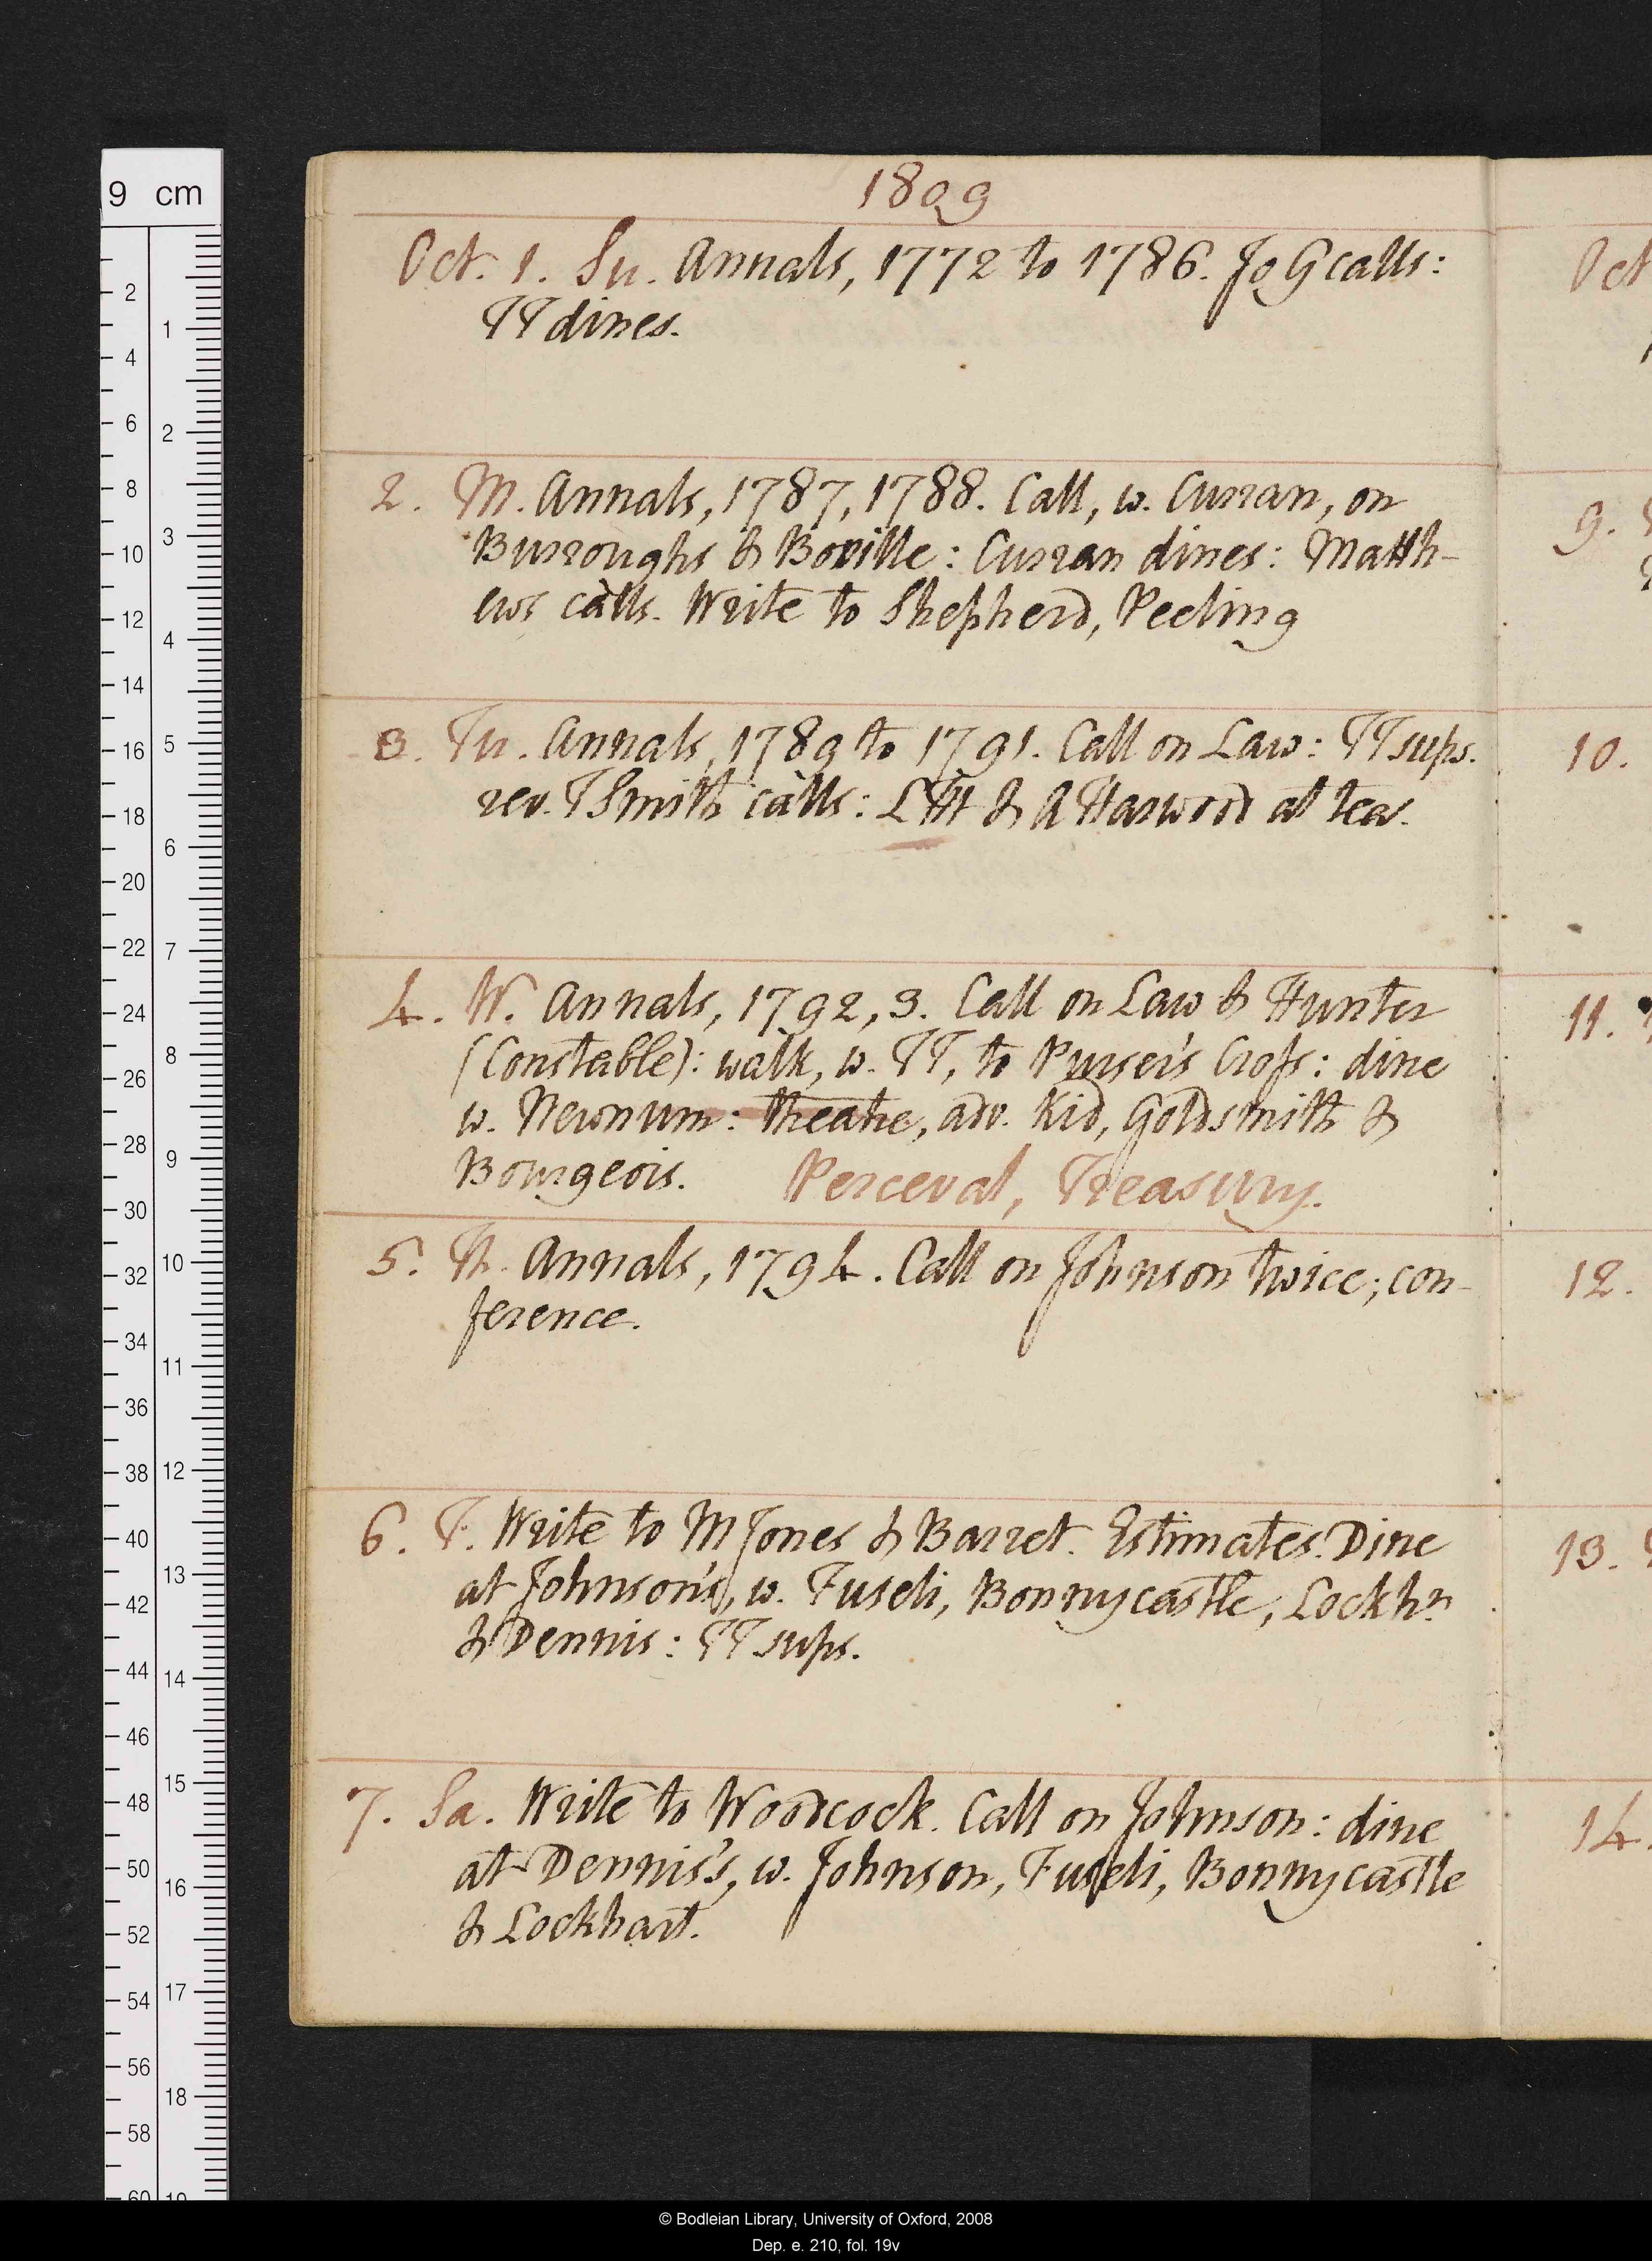 1809
Oct. 1. Su. Annals, 1772 to 1786. Jo G calls:
TT dines.
2. M. Annals, 1787, 1788. Call, w. Curran, on
Burroughs & Boville: Curran dines: Matth-
ews calls. Write to Shepherd, Peeling
3. Tu. Annals, 1789 to 1791. Call on Law: TT sups.
rev. T Smith calls: & A Harwood at tea.
4. W. Annals, 1792, 3. Call on Law & Hunter
(Constable): walk, w. TT, to Purser's Cross: dine
w. Newnum: theatre, adv. Kid, Goldsmith &
Bourgeois. Perceval, Treasury.
5. Th. Annals, 1794. Call on Johnson twice; con-
ference.
6. F. Write to M Jones & Barret. Estimates. Dine
at Johnson's, w. Fuseli, Bonnycastle, Lockh
& Dennis: TT sups.
7. Sa. Write to Woodcock. Call on Johnson: dine
at Dennis's, w. Johnson, Fuseli, Bonnycastle
& Lockhart.
Oct
9.
10.
11.
12.
13.
14.
9 cm
2
4
6
8
10
12
14
16
18
20
22
24
26
28
30
32
34
36
38
40
42
44
46
48
50
52
54
56
58
60
1
2
3
4
5
6
7
8
9
10
11
12
13
14
15
16
17
18
19
© Bodleian Library, University of Oxford, 2008
Dep. e. 210, fol. 19v